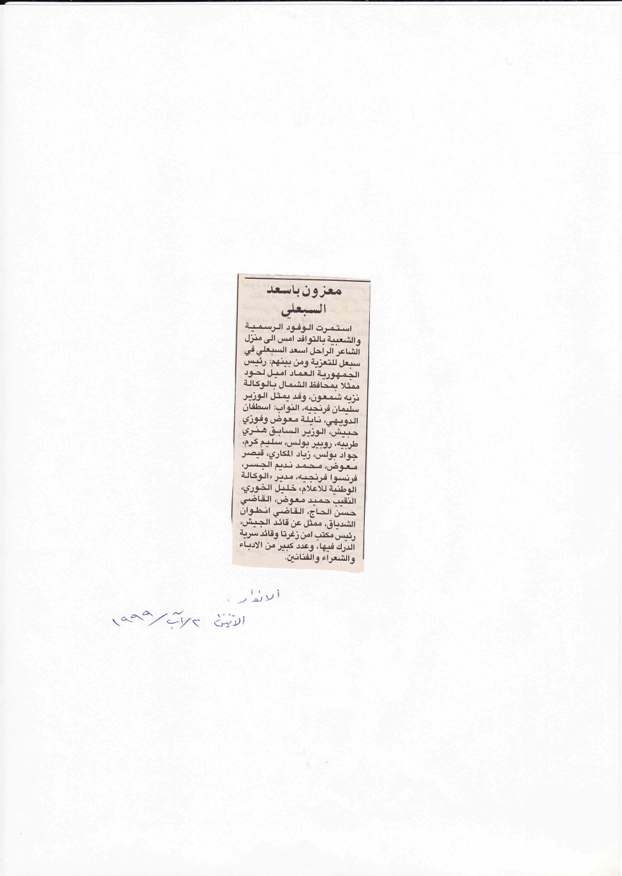 معزون باسعد
السبعلي
استمرت الوفود الرسمية
والشعبية بالتوافد امس الى منزل
الشاعر الراحل اسعد السبعلي في
سبعل للتعزية ومن بينهم: رئيس
الجمهورية العماد اميل لحود
ممثلا بمحافظ الشمال بالوكالة
نزيه شمعون، وفد يمثل الوزير
سليمان فرنجيه، النواب: اسطفان
الدويهي، نايلة معوض وفوزي
حبيش، الوزير السابق هنري
طربيه، روبير بولس، سليم كرم،
جواد بولس، زياد المكاري، قيصر
معوض، محمد نديم الجسر،
فرنسوا فرنجيه، مدير «الوكالة
الوطنية للاعلام، خليل الخوري،
النقيب حميد معوض، القاضي
حسن الحاج، القاضي انطوان
الشدياق، ممثل عن قائد الجيش،
رئيس مكتب امن زغرتا وقائد سرية
الدرك فيها، وعدد كبير من الادباء
والشعراء والفنانين.
الانوار.
الاثنين ٢/آب/١٩٩٩